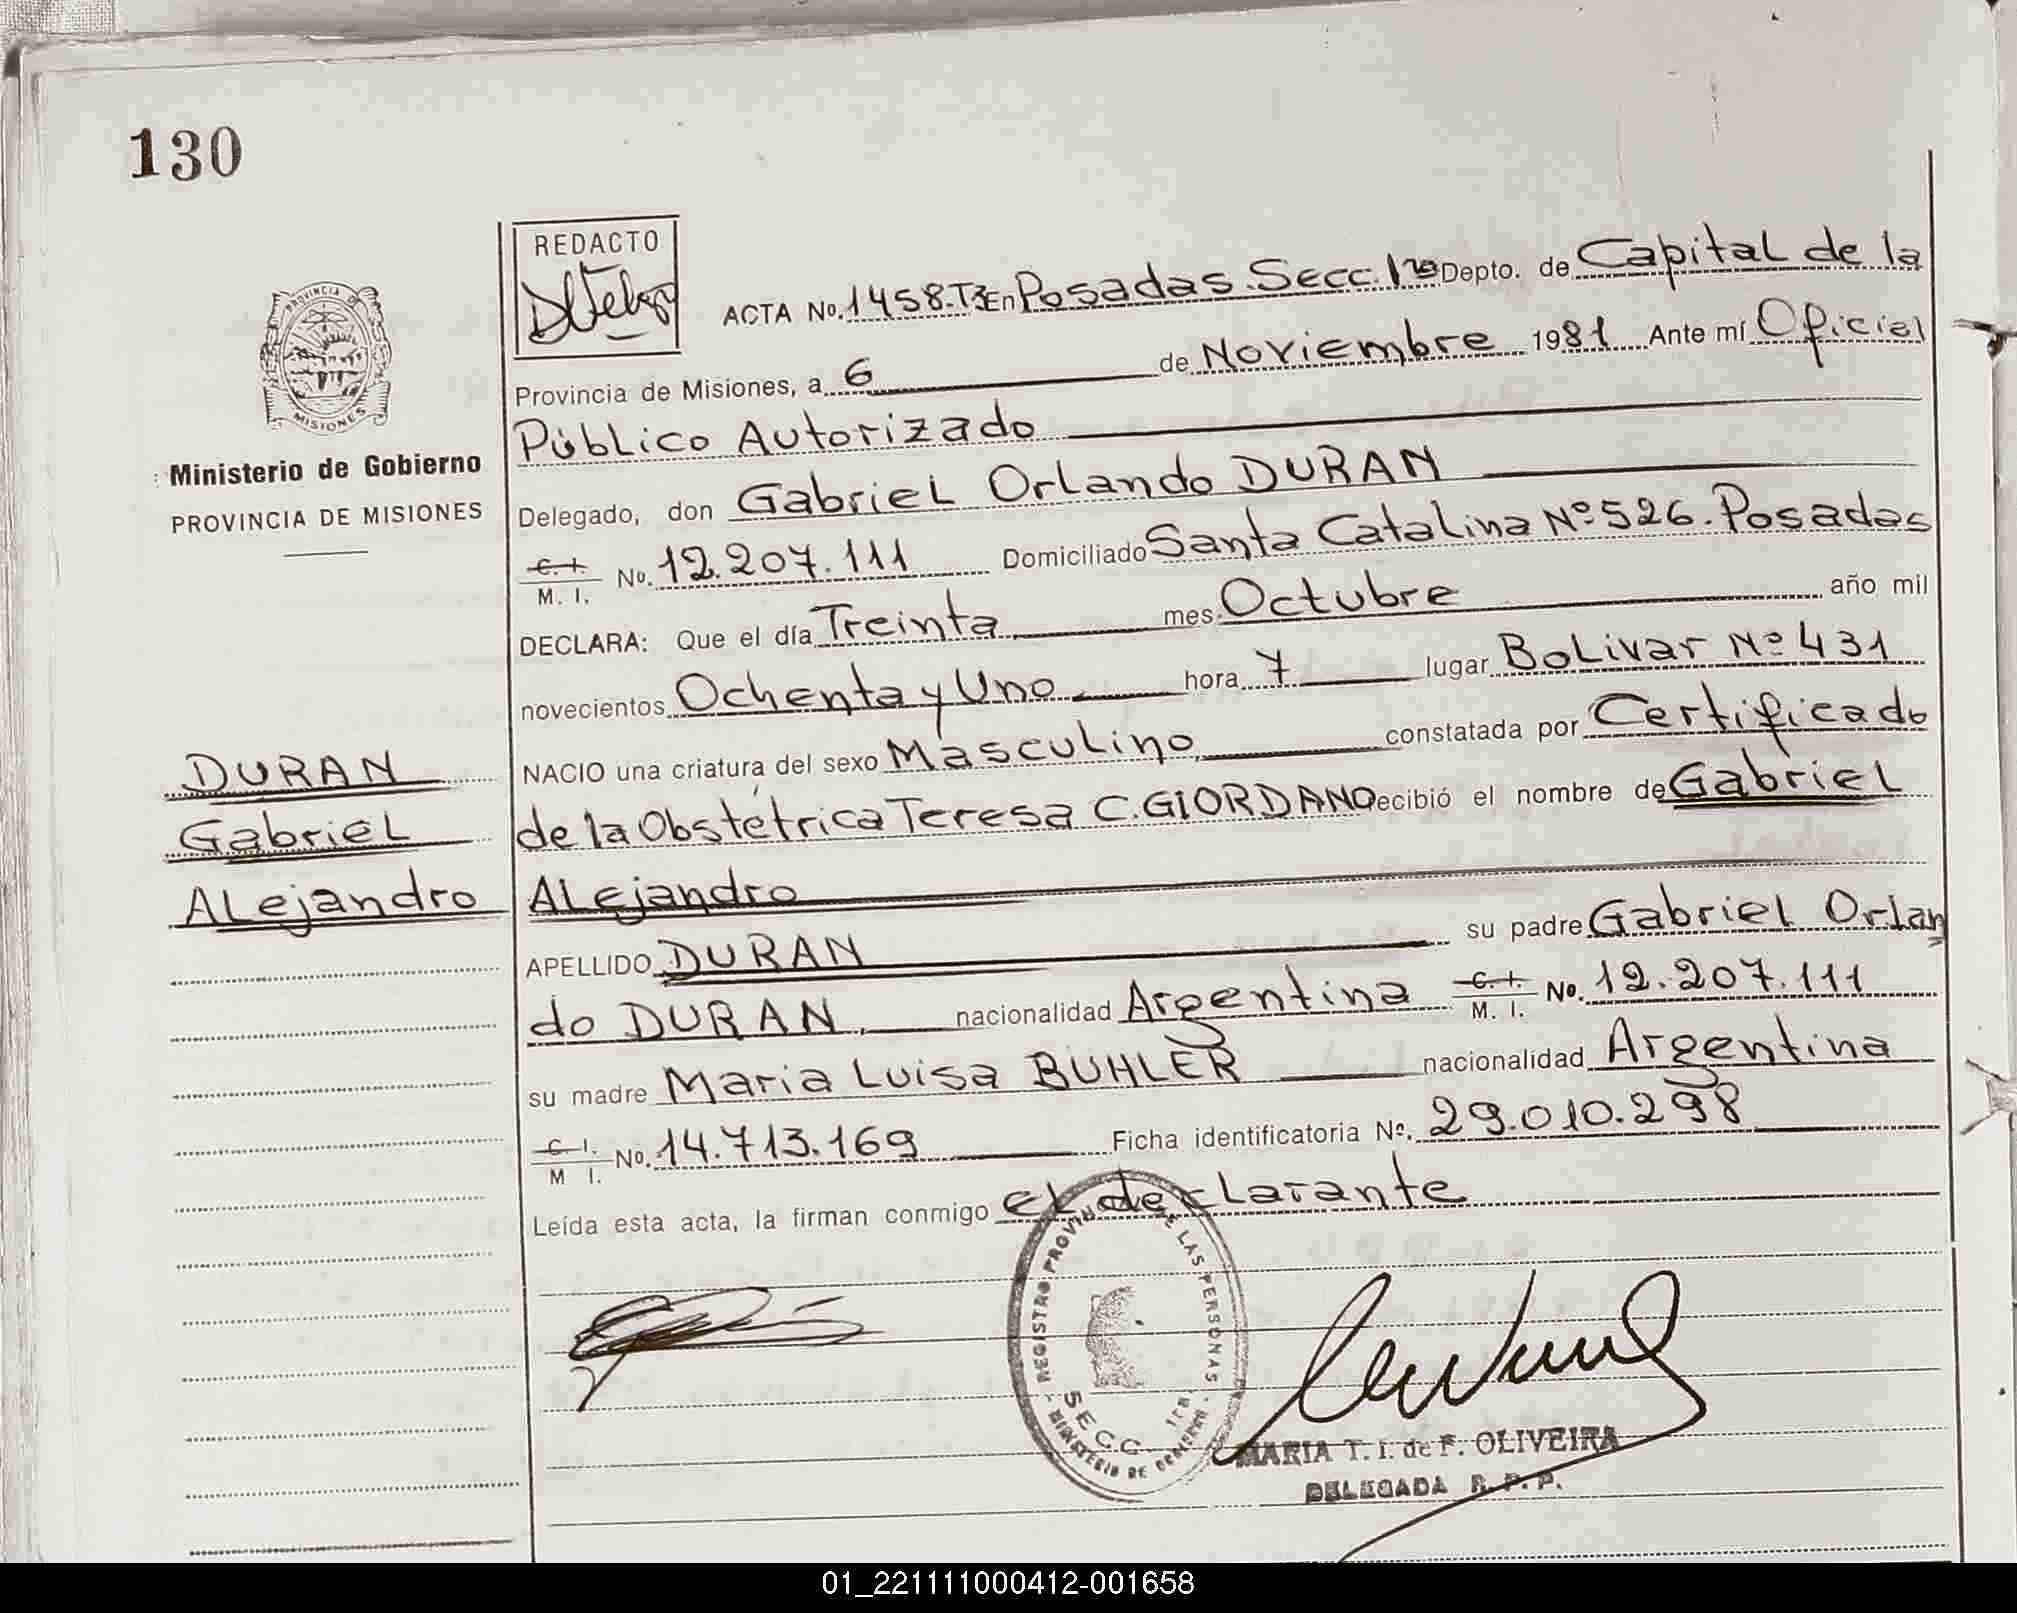 130
REDACTO
ACTA No. 1458.T3 En Posadas. Secc. 1ra Depto. de Capital de la
Provincia de Misiones, a 6 de Noviembre 1981 Ante mí Oficial
Público Autorizado
Delegado, don Gabriel Orlando DURAN
C. I.
M. I. No. 12.207.111 Domiciliado Santa Catalina Nº 526. Posadas
DECLARA: Que el día Treinta mes Octubre año mil
novecientos Ochenta y Uno hora 7 lugar Bolivar Nº 431
NACIO una criatura del sexo Masculino, constatada por Certificado
de la Obstétrica Teresa C. GIORDANO ecibió el nombre de Gabriel
Alejandro
APELLIDO DURAN su padre Gabriel Orlan
do DURAN, nacionalidad Argentina C. I.
M. I. No. 12.207.111
su madre Maria Luisa BUHLER nacionalidad Argentina
C I.
M I. No. 14.713.169 Ficha identificatoria Nº. 29.010.298
Leída esta acta, la firman conmigo el declarante
PROVINCIA DE
MISIONES
Ministerio de Gobierno
PROVINCIA DE MISIONES
DURAN
Gabriel
Alejandro
REGISTRO PROVIN DE LAS PERSONAS
SECC. 1ra.
MINISTERIO DE GOBIERNO
MARIA T. I. de F. OLIVEIRA
DELEGADA R. P. P.
01_221111000412-001658